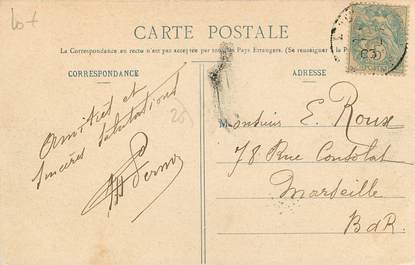 CARTE POSTALE
La Correspondance au recto n'est pas acceptée par tous les Pays Étrangers. (Se renseigner à la Poste)
CORRESPONDANCE
ADRESSE
Amitiés et
sincères salutations
Monsieur E. Roux
78 Rue Consolat
Marseille
B d R.